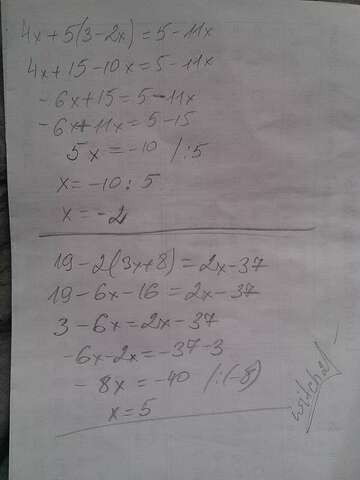 4x+5(3-2x)=5-11x
4x+15-10x=5-11x
-6x+15=5-11x
-6x+11x=5-15
5x=-10 /:5
x=-10:5
x=-2
19-2(3x+8)=2x-37
19-6x-16=2x-37
3-6x=2x-37
-6x-2x=-37-3
-8x=-40 /:(-8)
x=5